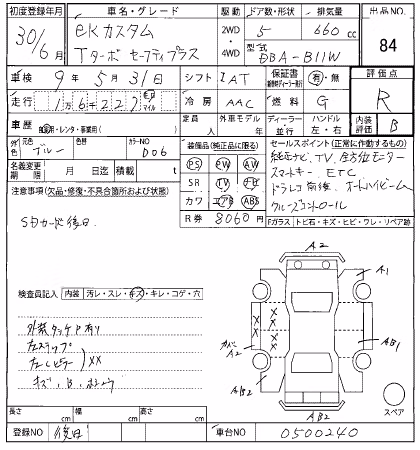 初度登録年月 車名・グレード 駆動 ドア数・形状 排気量 出品NO.
30/6月 eKカスタム 2WD・4WD 5 660cc 84
Tターボ セーフティプラス 型式 DBA-B11W
車検 9年5月31日 シフト IAT 保証書 有・無 評価点
走行 16227 km マイル 冷房 AAC 燃料 G R
車歴 自家用・レンタ・事業用( ) 定員 人 外車モデル 年 ディーラー 並行 ハンドル 左・右 内装評価 B
外色 元色 ブルー カラーNO D06
名義変更期限 月 日迄 積載 t
装備品(純正品に限る)
PS PW AW
SR TV ナビ
カワ エアB ABS
R券 8060円
セールスポイント(正常に作動するもの)
純正ナビ、TV、全方位モニター
スマートキー ETC
ドラレコ前後、オートハイビーム
クルーズコントロール
Fガラス トビ石・キズ・ヒビ・ワレ・リペア跡
注意事項(欠品・修復・不具合箇所および状態)
SDカード後日
検査員記入 内装 汚レ・スレ・キズ・キレ・コゲ・穴
外装タッチP有り
左ステップ
左Cピラー XX
キズ、B、
A2
A1
X X
X X
X X
A2
AB1
A/B2
AB2
スペア
長さ cm 幅 cm 高さ cm
登録NO 後日 車台NO 0500240